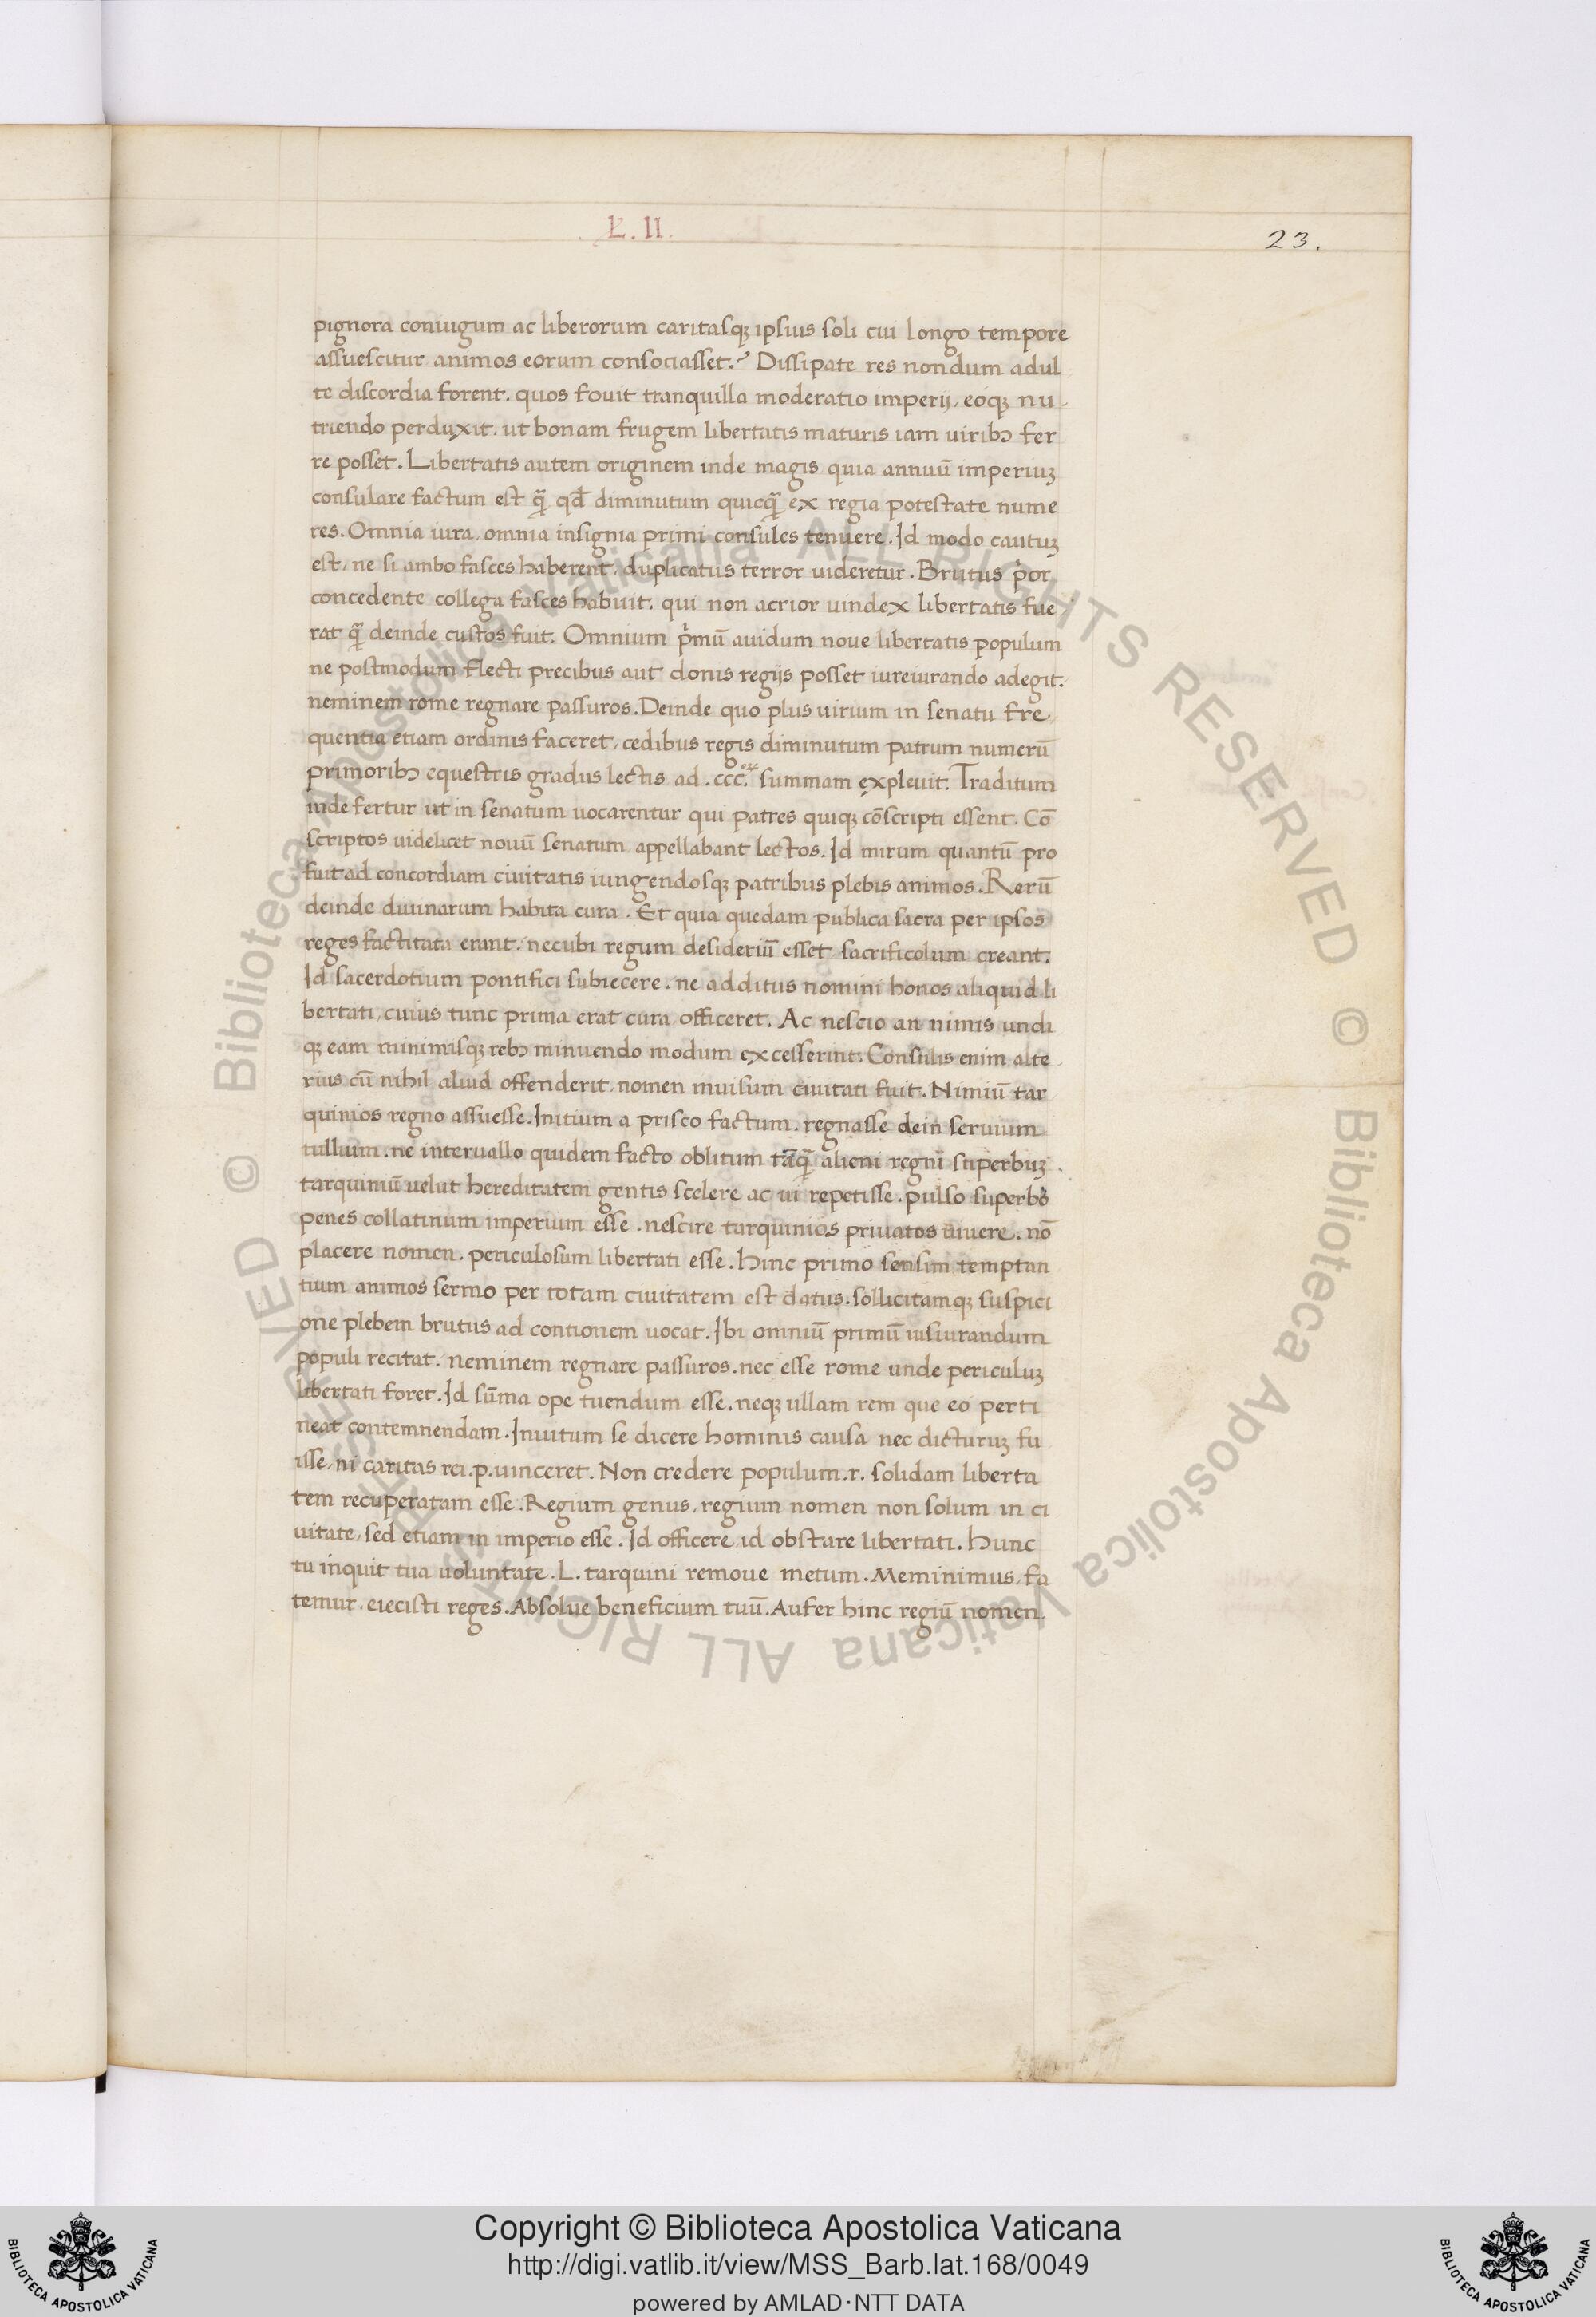 L.II.
23.
pignora coniugum ac liberorum caritasqꝫ ipsius soli cui longo tempore
assuescitur animos eorum consociasset.? Dissipate res nondum adul
te discordia forent. quos fouit tranquilla moderatio imperij, eoqꝫ nu-
triendo perduxit. ut bonam frugem libertatis maturis iam uiribꝰ fer
re posset. Libertatis autem originem inde magis quia annuū imperiuꝫ
consulare factum est qͣ̄ qđ diminutum quicqͣ̄ ex regia potestate nume
res. Omnia iura, omnia insignia primi consules tenuere. Id modo cautuꝫ
est, ne si ambo fasces haberent, duplicatus terror uideretur. Brutus pͥor
concedente collega fasces habuit. qui non acrior uindex libertatis fue
rat qͣ̄ deinde custos fuit. Omnium pͥmū auidum noue libertatis populum
ne postmodum flecti precibus aut donis regijs posset iureiurando adegit.
neminem rome regnare passuros. Deinde quo plus uirium in senatu fre,
quentia etiam ordinis faceret, cedibus regis diminutum patrum numerū
primoribꝰ equestris gradus lectis ad .ccc. summam expleuit. Traditum
inde fertur ut in senatum uocarentur qui patres quiqꝫ cōscripti essent. Cō
scriptos uidelicet nouū senatum appellabant lectos. Id mirum quantū pro
fuit ad concordiam ciuitatis iungendosqꝫ patribus plebis animos. Rerū
deinde diuinarum habita cura. Et quia quedam publica sacra per ipsos
reges factitata erant. necubi regum desideriū esset sacrificolum creant.
Id sacerdotium pontifici subiecere. ne additus nomini honos aliquid li
bertati, cuius tunc prima erat cura officeret. Ac nescio an nimis undi
qꝫ eam minimisqꝫ rebꝰ minuendo modum excesserint. Consulis enim alte
rius cū nihil aliud offenderit, nomen inuisum ciuitati fuit. Nimiū tar
quinios regno assuesse. Initium a prisco factum. regnasse dein seruium
tullium. ne interuallo quidem facto oblitum tāqͣ̄ alieni regni superbuꝫ
tarquiniū uelut hereditatem gentis scelere ac ui repetisse. pulso superbo
penes collatinum imperium esse. nescire tarquinios priuatos uiuere. nō
placere nomen. periculosum libertati esse. hinc primo sensim temptan
tium animos sermo per totam ciuitatem est datus. sollicitamqꝫ suspici
one plebem brutus ad contionem uocat. Ibi omniū primū iusiurandum
populi recitat. neminem regnare passuros. nec esse rome unde periculuꝫ
libertati foret. Id sūma ope tuendum esse. neqꝫ ullam rem que eo perti
neat contemnendam. Inuitum se dicere hominis causa nec dicturuꝫ fu
isse, ni caritas rei.p. uinceret. Non credere populum.r. solidam liberta
tem recuperatam esse. Regium genus, regium nomen non solum in ci
uitate, sed etiam in imperio esse. Id officere id obstare libertati. hunc
tu inquit tua uoluntate .L. tarquini remoue metum. Meminimus, fa
temur. eiecisti reges. Absolue beneficium tuū. Aufer hinc regiū nomen.
© Biblioteca Apostolica Vaticana ALL RIGHTS RESERVED © Biblioteca Apostolica Vaticana ALL RIGHTS RESERVED
Copyright © Biblioteca Apostolica Vaticana
http://digi.vatlib.it/view/MSS_Barb.lat.168/0049
powered by AMLAD·NTT DATA
BIBLIOTECA APOSTOLICA VATICANA
BIBLIOTECA APOSTOLICA VATICANA